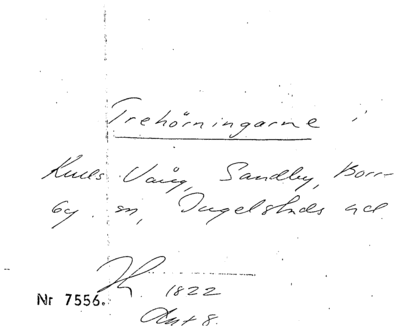 Trehörningarne i
Kuels Vång, Sandby, Borr-
by sn, Ingelstads hd
1822
Nr 7556.
Akt 8.